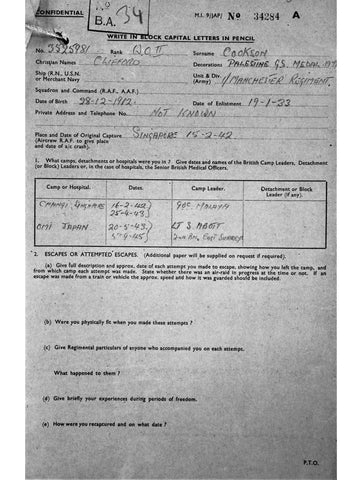 CONFIDENTIAL
B.A. 34
M.I. 9/JAP/ No 34284 A
WRITE IN BLOCK CAPITAL LETTERS IN PENCIL
No. Rank Surname COOKSON
Christian Names CLIFFORD Decorations PALESTINE GS. MEDAL
Ship (R.N., U.S.N. or Merchant Navy Unit & Div. (Army) 1/MANCHESTER REGIMENT.
Squadron and Command (R.A.F., A.A.F.)
Date of Birth 28-12-1912. Date of Enlistment 19-1-33
Private Address and Telephone No. NOT KNOWN
Place and Date of Original Capture SINGAPORE 15-2-42.
(Aircrew R.A.F. to give place
and date of a/c crash).
1. What camps, detachments or hospitals were you in? Give dates and names of the British Camp Leaders, Detachment
(or Block) Leaders or, in the case of hospitals, the Senior British Medical Officers.
Camp or Hospital. Dates. Camp Leader. Detachment or Block Leader (if any).
CHANGI, 16-2-42) GOC MALAYA
25-4-43)
OMI JAPAN 20-5-43) LT S. ABBOTT
5-9-45) 2nd Bn. EAST SURREYS
*2. ESCAPES OR ATTEMPTED ESCAPES. (Additional paper will be supplied on request if required).
(a) Give full description and approx. date of each attempt you made to escape, showing how you left the camp, and
from which camp each attempt was made. State whether there was an air-raid in progress at the time or not. If an
escape was made from a train or vehicle the approx. speed and how it was guarded should be included.
(b) Were you physically fit when you made these attempts?
(c) Give Regimental particulars of anyone who accompanied you on each attempt.
What happened to them?
(d) Give briefly your experiences during periods of freedom.
(e) How were you recaptured and on what date?
P.T.O.